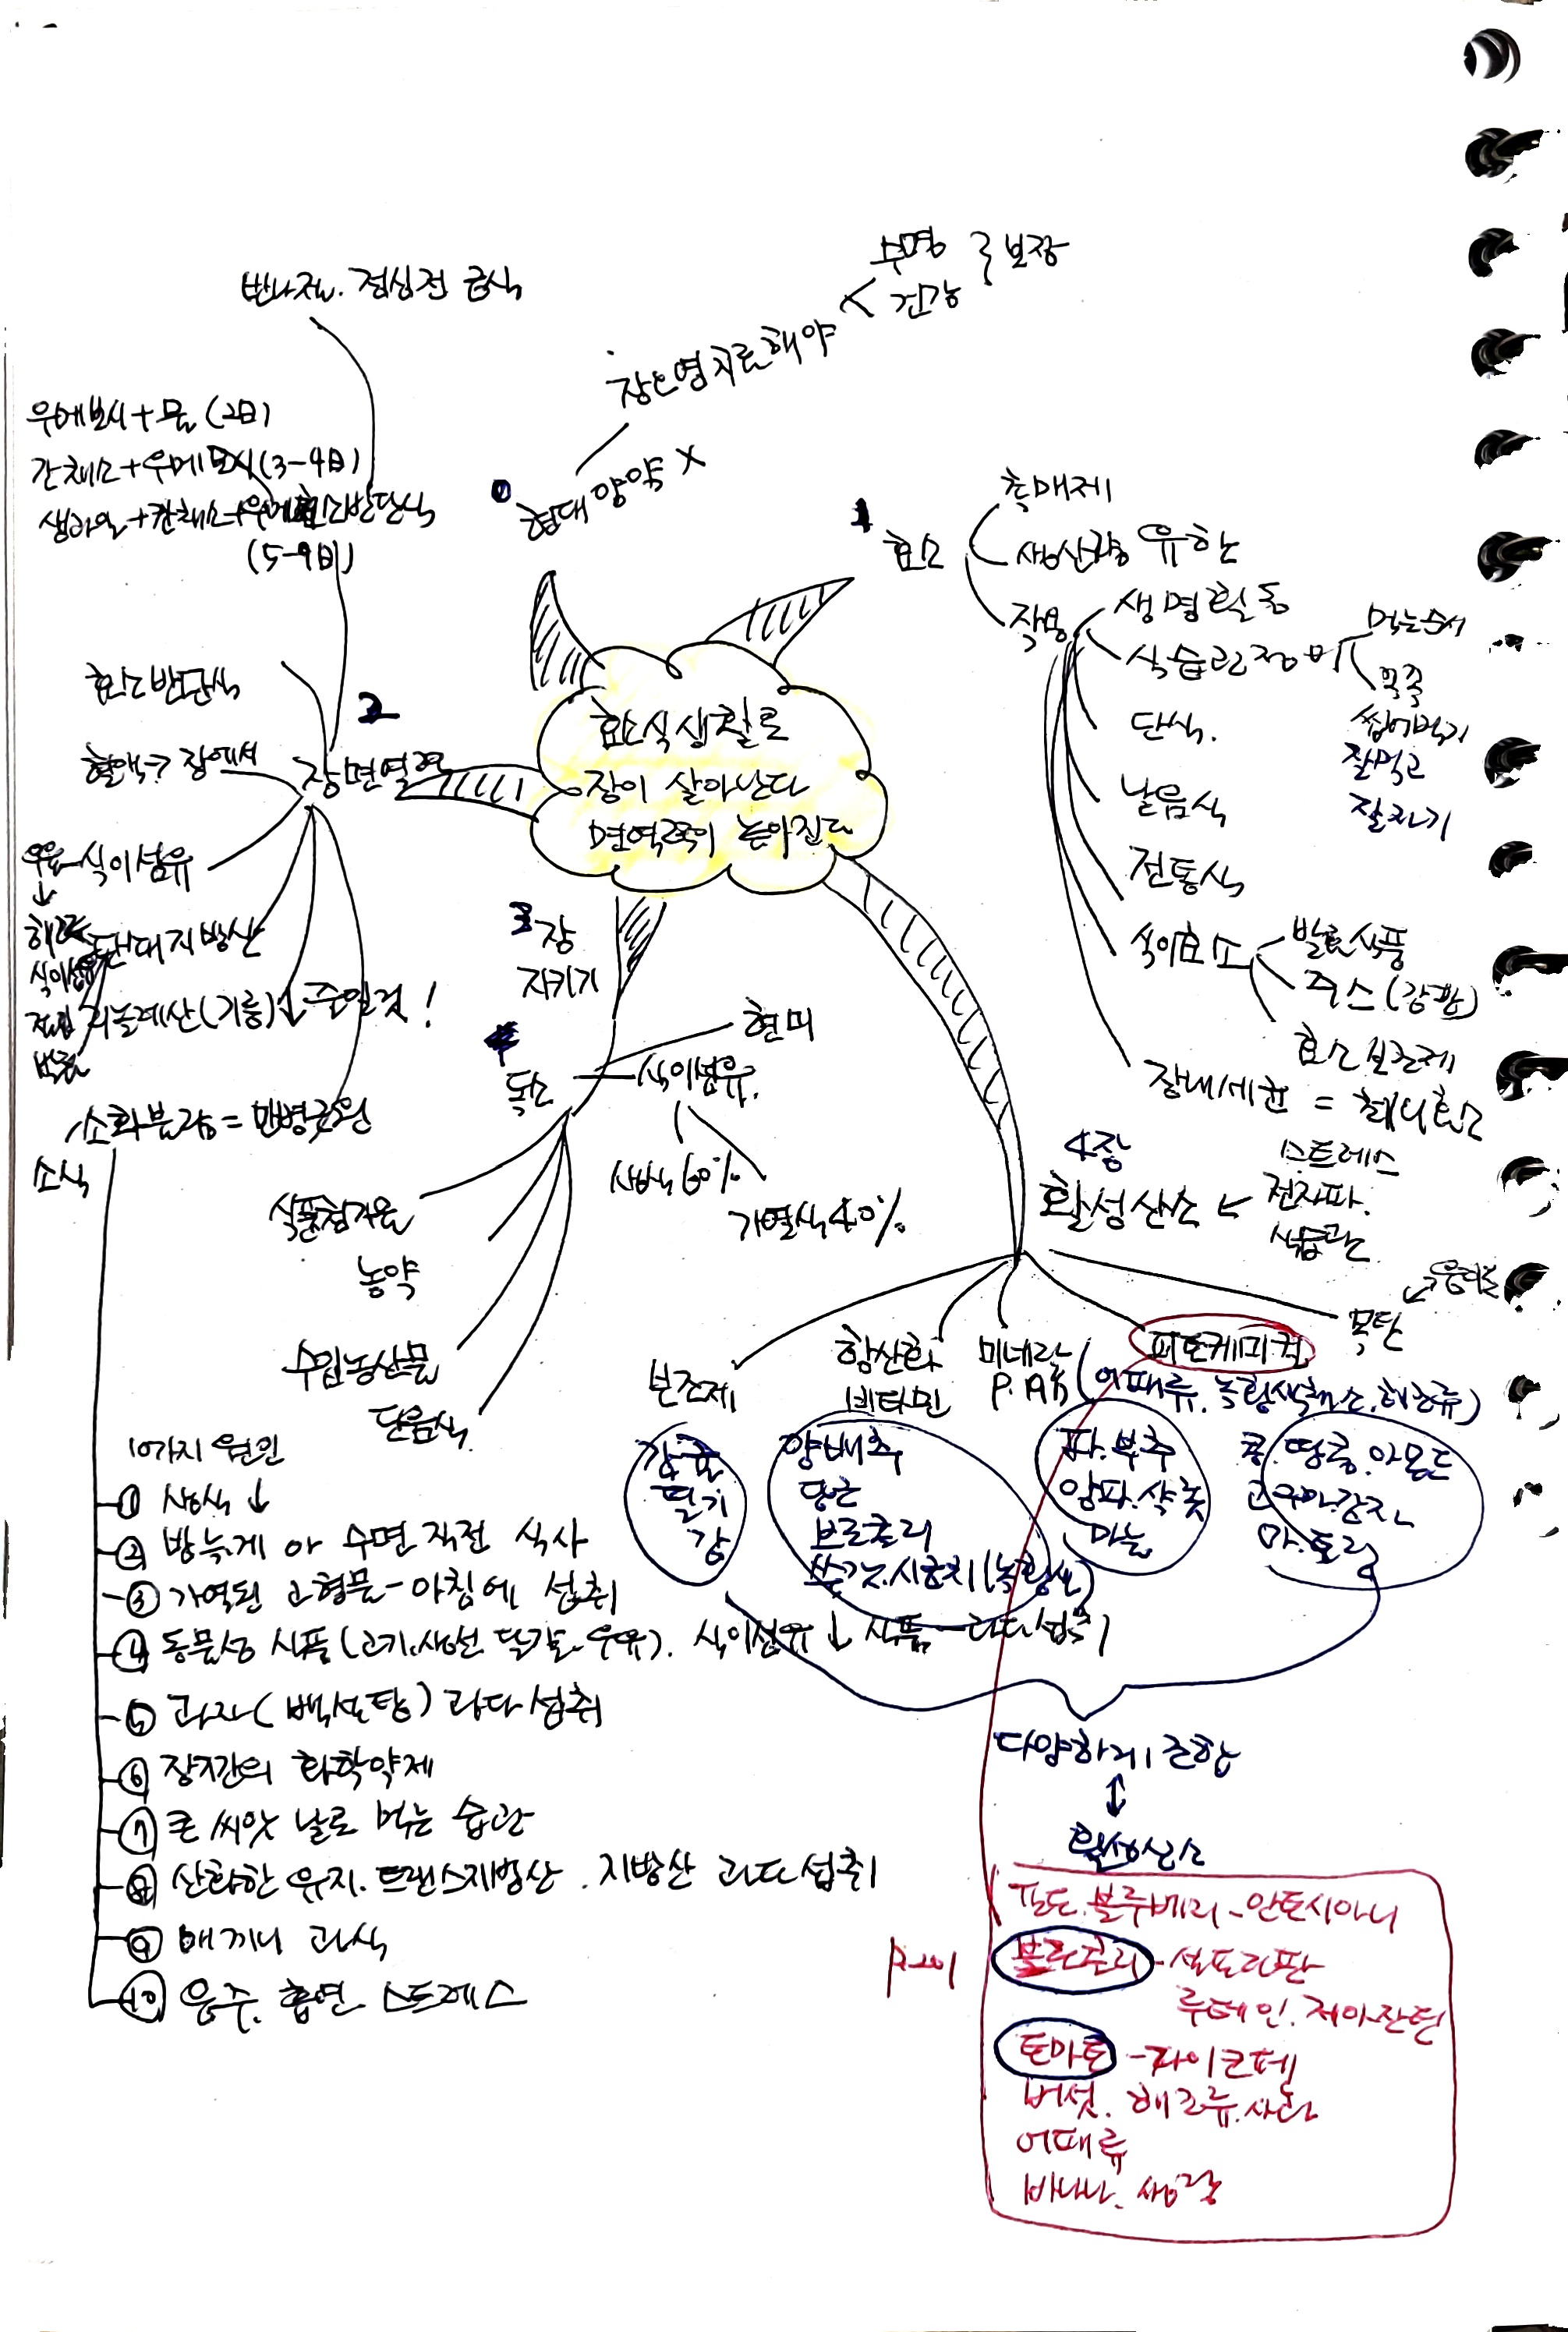 수명
건강 } 보장
반나절. 점심전 금식
장은 명 지름 해야
우메보시+물 (2日)
간 채소+우메보시(3-4日)
생과일+간채소+우메 효소반단식
(5-9日)
0
현대 양약 X
1
효소
촉매제
생산량 유한
작용
생명활동
식습관 정비
먹는순서
꼭꼭
씹어먹기
잘먹고
잘자기
단식.
날음식
전통식
식이효소
발효식품
쥬스(강판)
효소보조제
장내세균 = 체내효소
효소식생활로
장이 살아난다
면역력이 높아진다
2
장 면역력
효소반단식
혈액? 장에서
식이섬유
리놀레산(기름)↓ 줄일것!
소화불량= 만병근원
소식
3장
지키기
독소
현미
식이섬유.
생식 60%
가열식 40%
식품첨가물
농약
수입농산물
단음식.
4장
활성산소 ←
스트레스
전자파.
식습관
보조제
항산화
비타민
미네랄
피토케미컬
(야채류, 녹황색채소, 해조류)
목탄
감귤
딸기
감
양배추
당근
브로콜리
쑥갓.시금치(녹황색)
파.부추
양파.샬롯
마늘
콩.땅콩.아몬드
고구마.감자
마.토란
다양하게 조합
↕
활성산소
10가지 원인
① 생식↓
② 밤늦게 or 수면직전 식사
③ 가열된 고형물-아침에 섭취
④ 동물성 식품(고기.생선 달걀. 우유). 식이섬유↓ 식품-과다섭취
⑤ 과자(백설탕) 과다 섭취
⑥ 장기간의 화학약제
⑦ 큰 씨앗 날로 먹는 습관
⑧ 산화한 유지. 트랜스지방산. 지방산 과다섭취
⑨ 매끼니 과식
⑩ 음주. 흡연. 스트레스
포도.블루베리-안토시아니
브로콜리-설포라판
루테인.제아잔틴
토마토-라이코펜
버섯. 해조류.사과
야채류
바나나. 생강